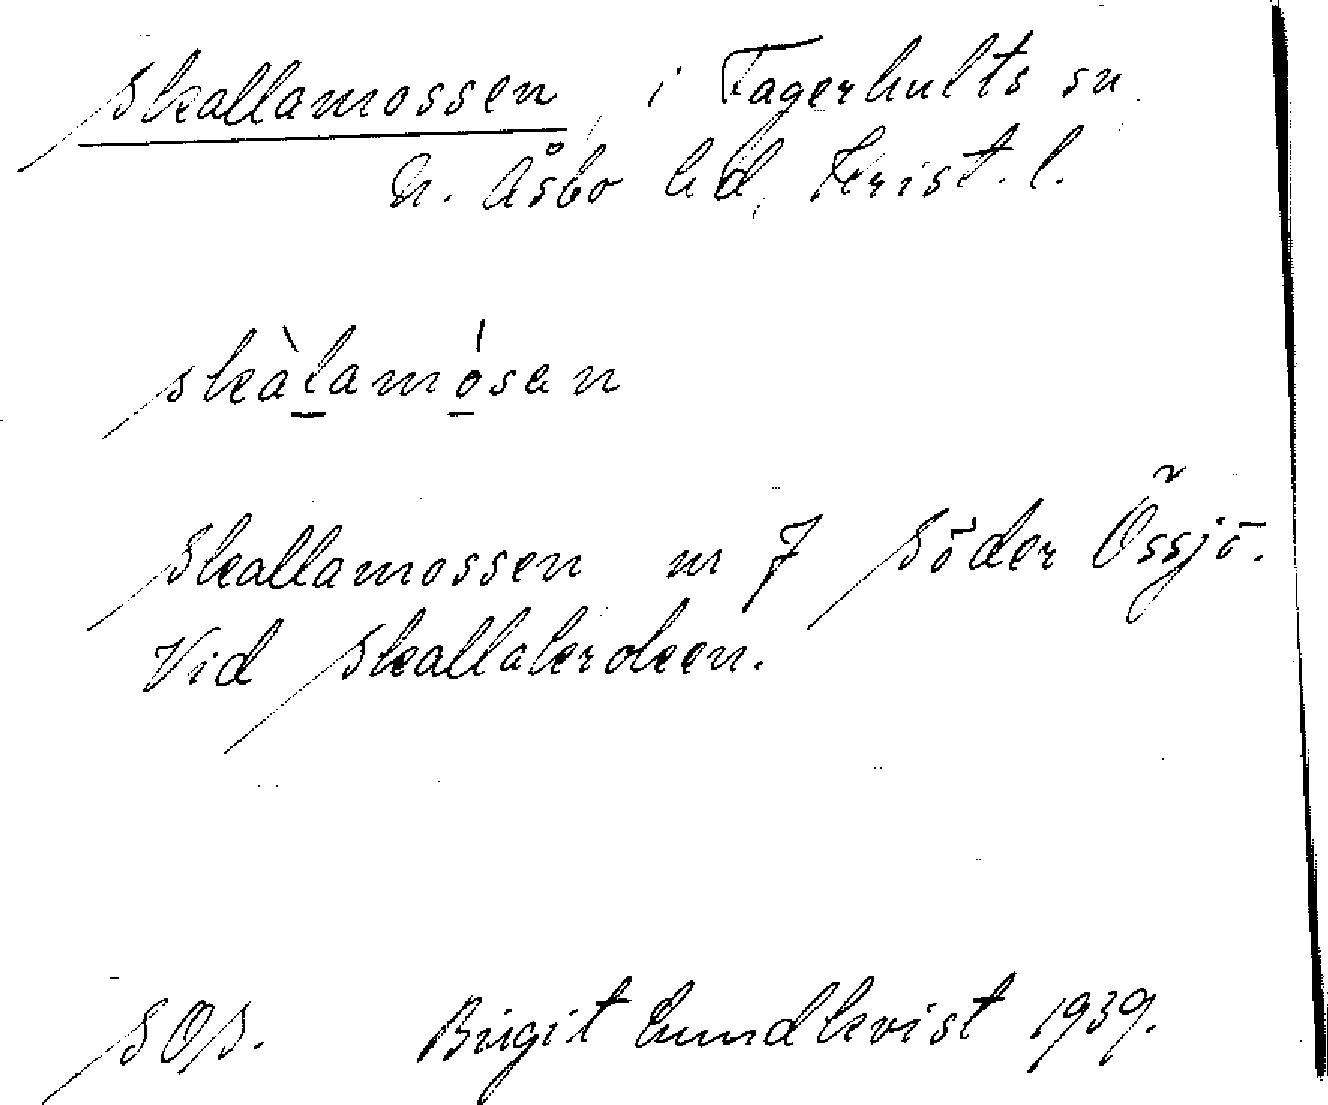 Skallamossen, i Fagerhults sn.
N. Åsbo hd, Krist. l.
skàlamósan
Skallamossen nr 7 Söder Össjö.
Vid Skallakroken.
SOS. Birgit Lundkvist 1939.